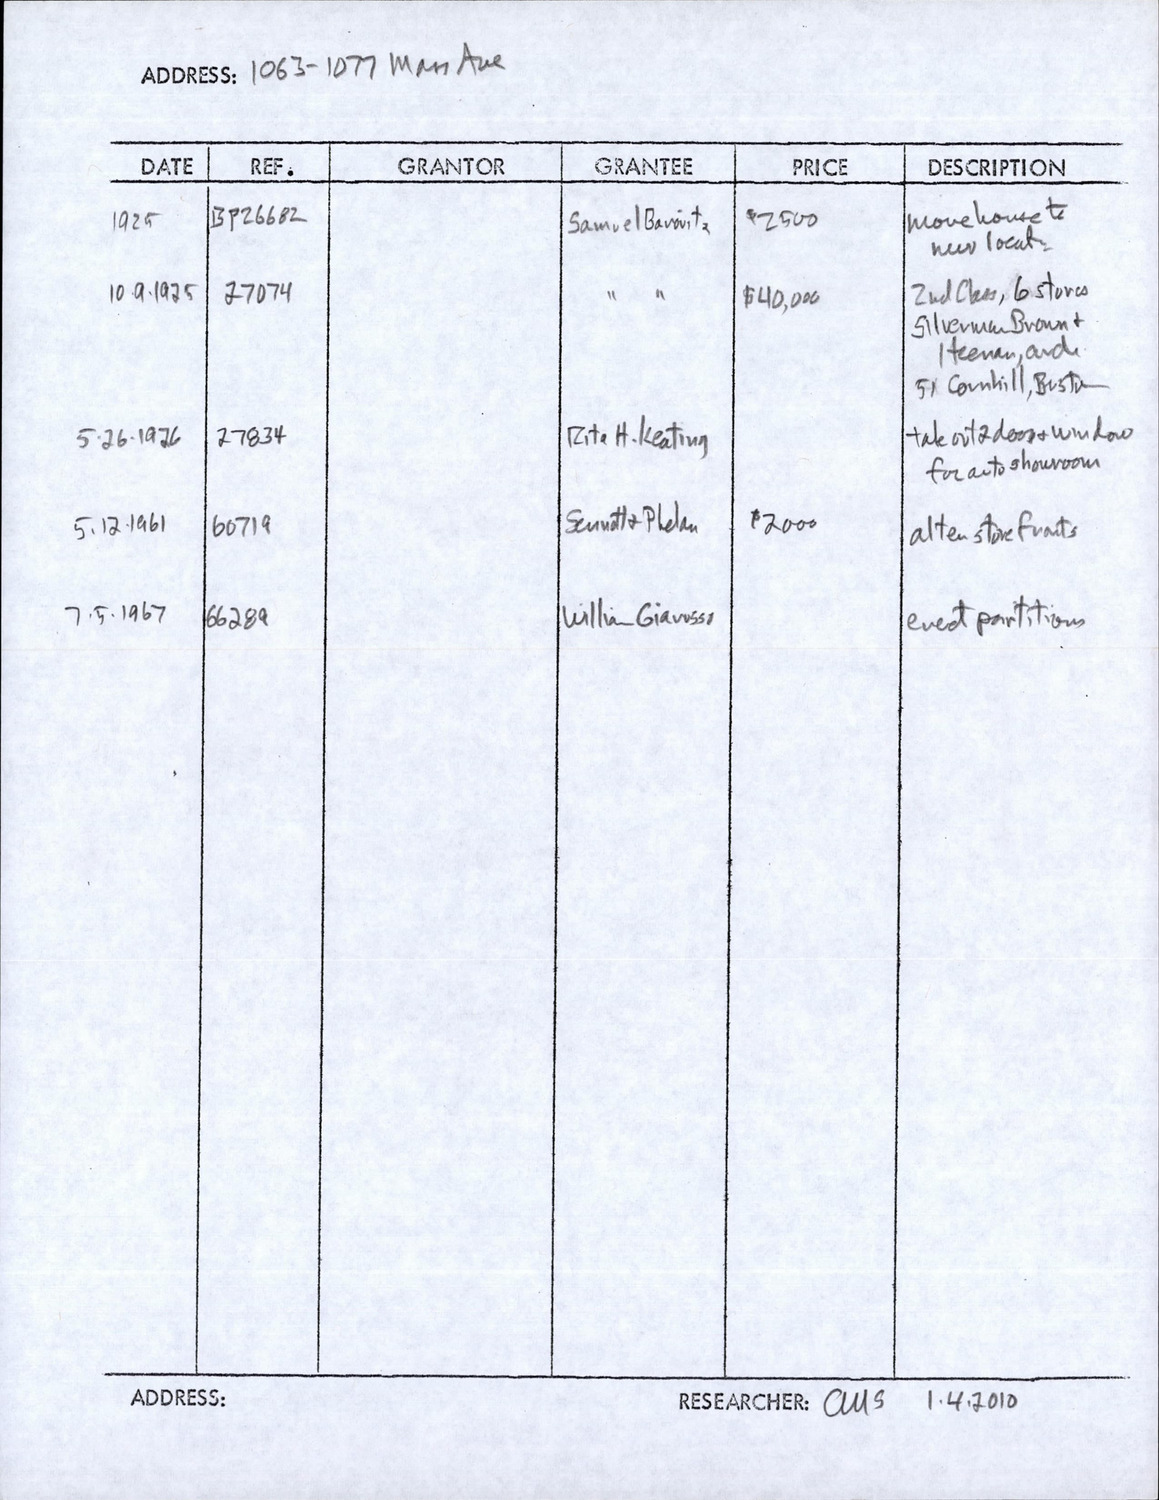 ADDRESS: 1063-1077 Mass Ave
DATE REF. GRANTOR GRANTEE PRICE DESCRIPTION
1925 BP26682 Samuel $2500 move house to
new locatn
10.9.1925 27074 " " $40,000 2nd Class, 6 stores
Silverman Brown +
Heenan, archs.
51 Cornhill, Boston
5.26.1926 27834 Rita H. Keating take out 2 doors + window
for auto showroom
5.12.1961 60719 Sennott + Phelan $2000 alter store fronts
7.5.1967 66289 William Giarusso erect partitions
ADDRESS: RESEARCHER: CMS 1.4.2010